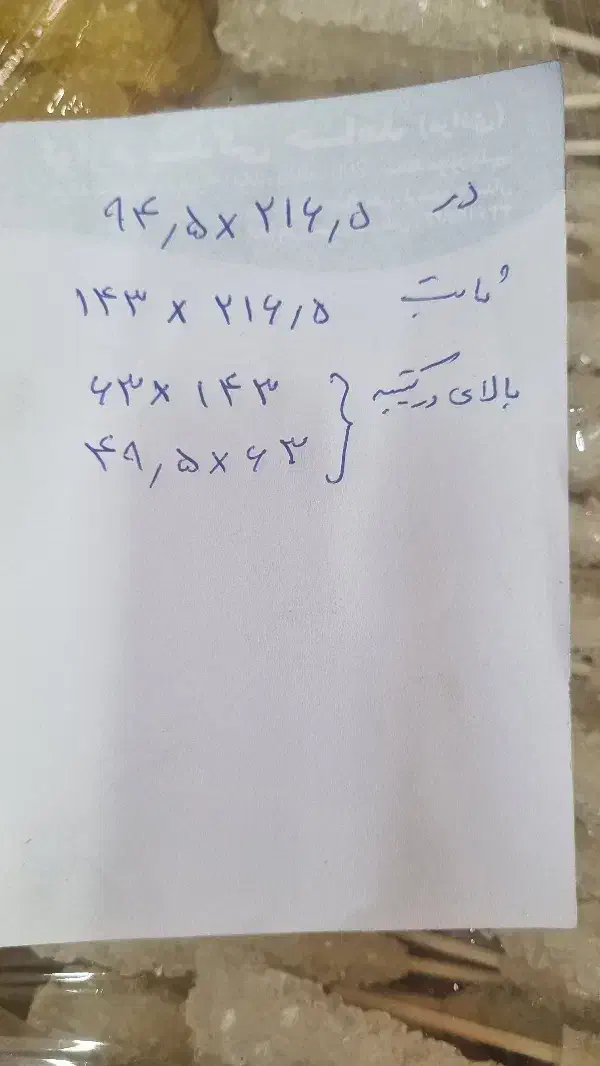 در ۹۴,۵ × ۲۱۶,۵
ثابت ۱۴۳ × ۲۱۶,۵
بالای در کتیبه { ۶۳ × ۱۴۳
۴۹,۵ × ۶۳